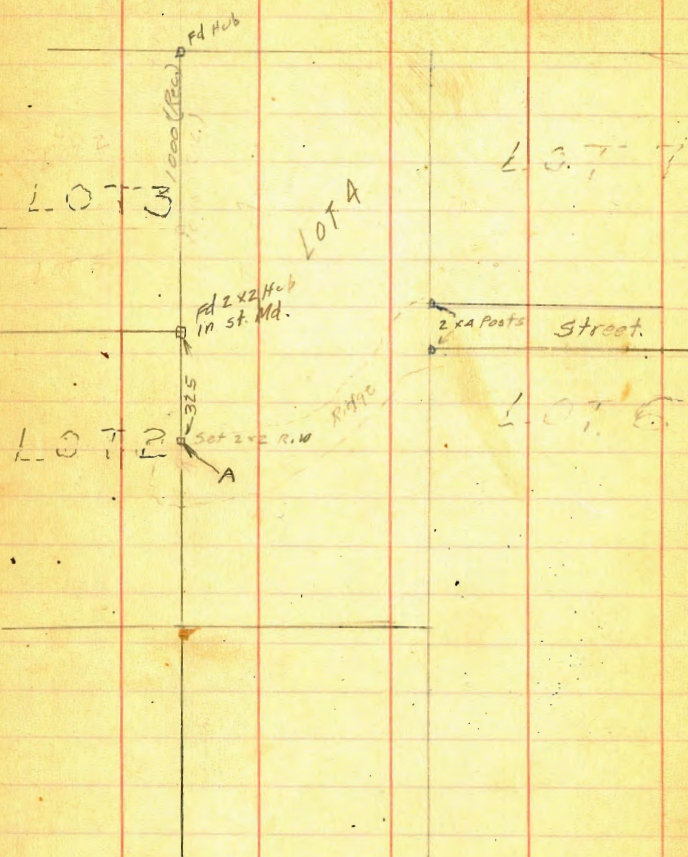 Fd Hub
1000 (Rec.)
LOT 3
LOT 4
LOT 7
Fd 2x2 Hub
in st. Md.
2 x 4 Posts
Street.
325
Ridge
LOT 6
LOT 2
Set 2x2 R.W
A